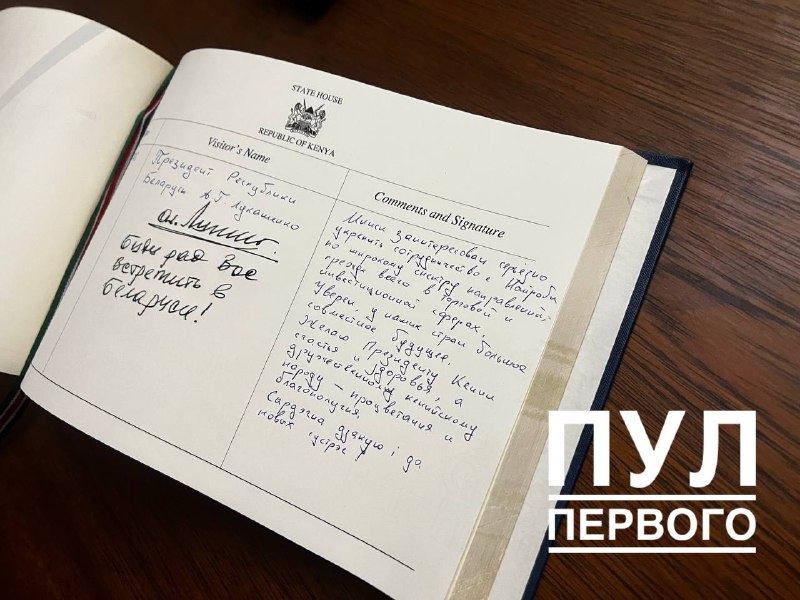 STATE HOUSE
REPUBLIC OF KENYA
Visitor's Name
Президент Республики
Беларусь А.Г. Лукашенко
Были рад Вас
встретить в
Беларуси!
Comments and Signature
Минск заинтересован серьезно
укрепить сотрудничество с Найроби
по широкому спектру направлений,
прежде всего в торговой и
инвестиционной сферах.
Уверен, у наших стран большое
совместное будущее.
Желаю Президенту Кении
счастья и здоровья, а
дружественному кенийскому
народу – процветания и
благополучия.
Сардэчна дзякую і да
новых сустрэч!
ПУЛ
ПЕРВОГО